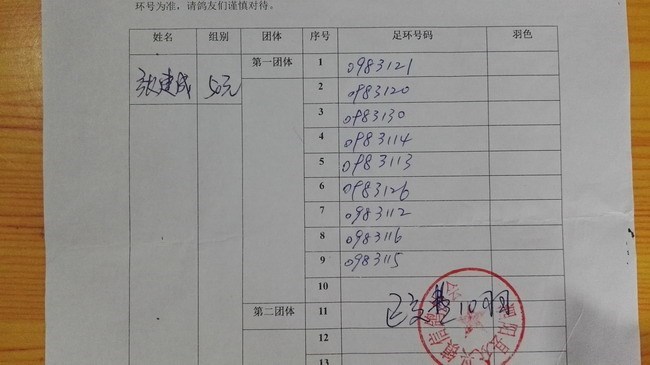 环号为准，请鸽友们谨慎对待。
姓名 组别 团体 序号 足环号码 羽色
张建成 50元 第一团体 1 0983121
2 0983120
3 0983130
4 0983114
5 0983113
6 0983126
7 0983112
8 0983116
9 0983115
10
第二团体 11 已交费10羽
12
13